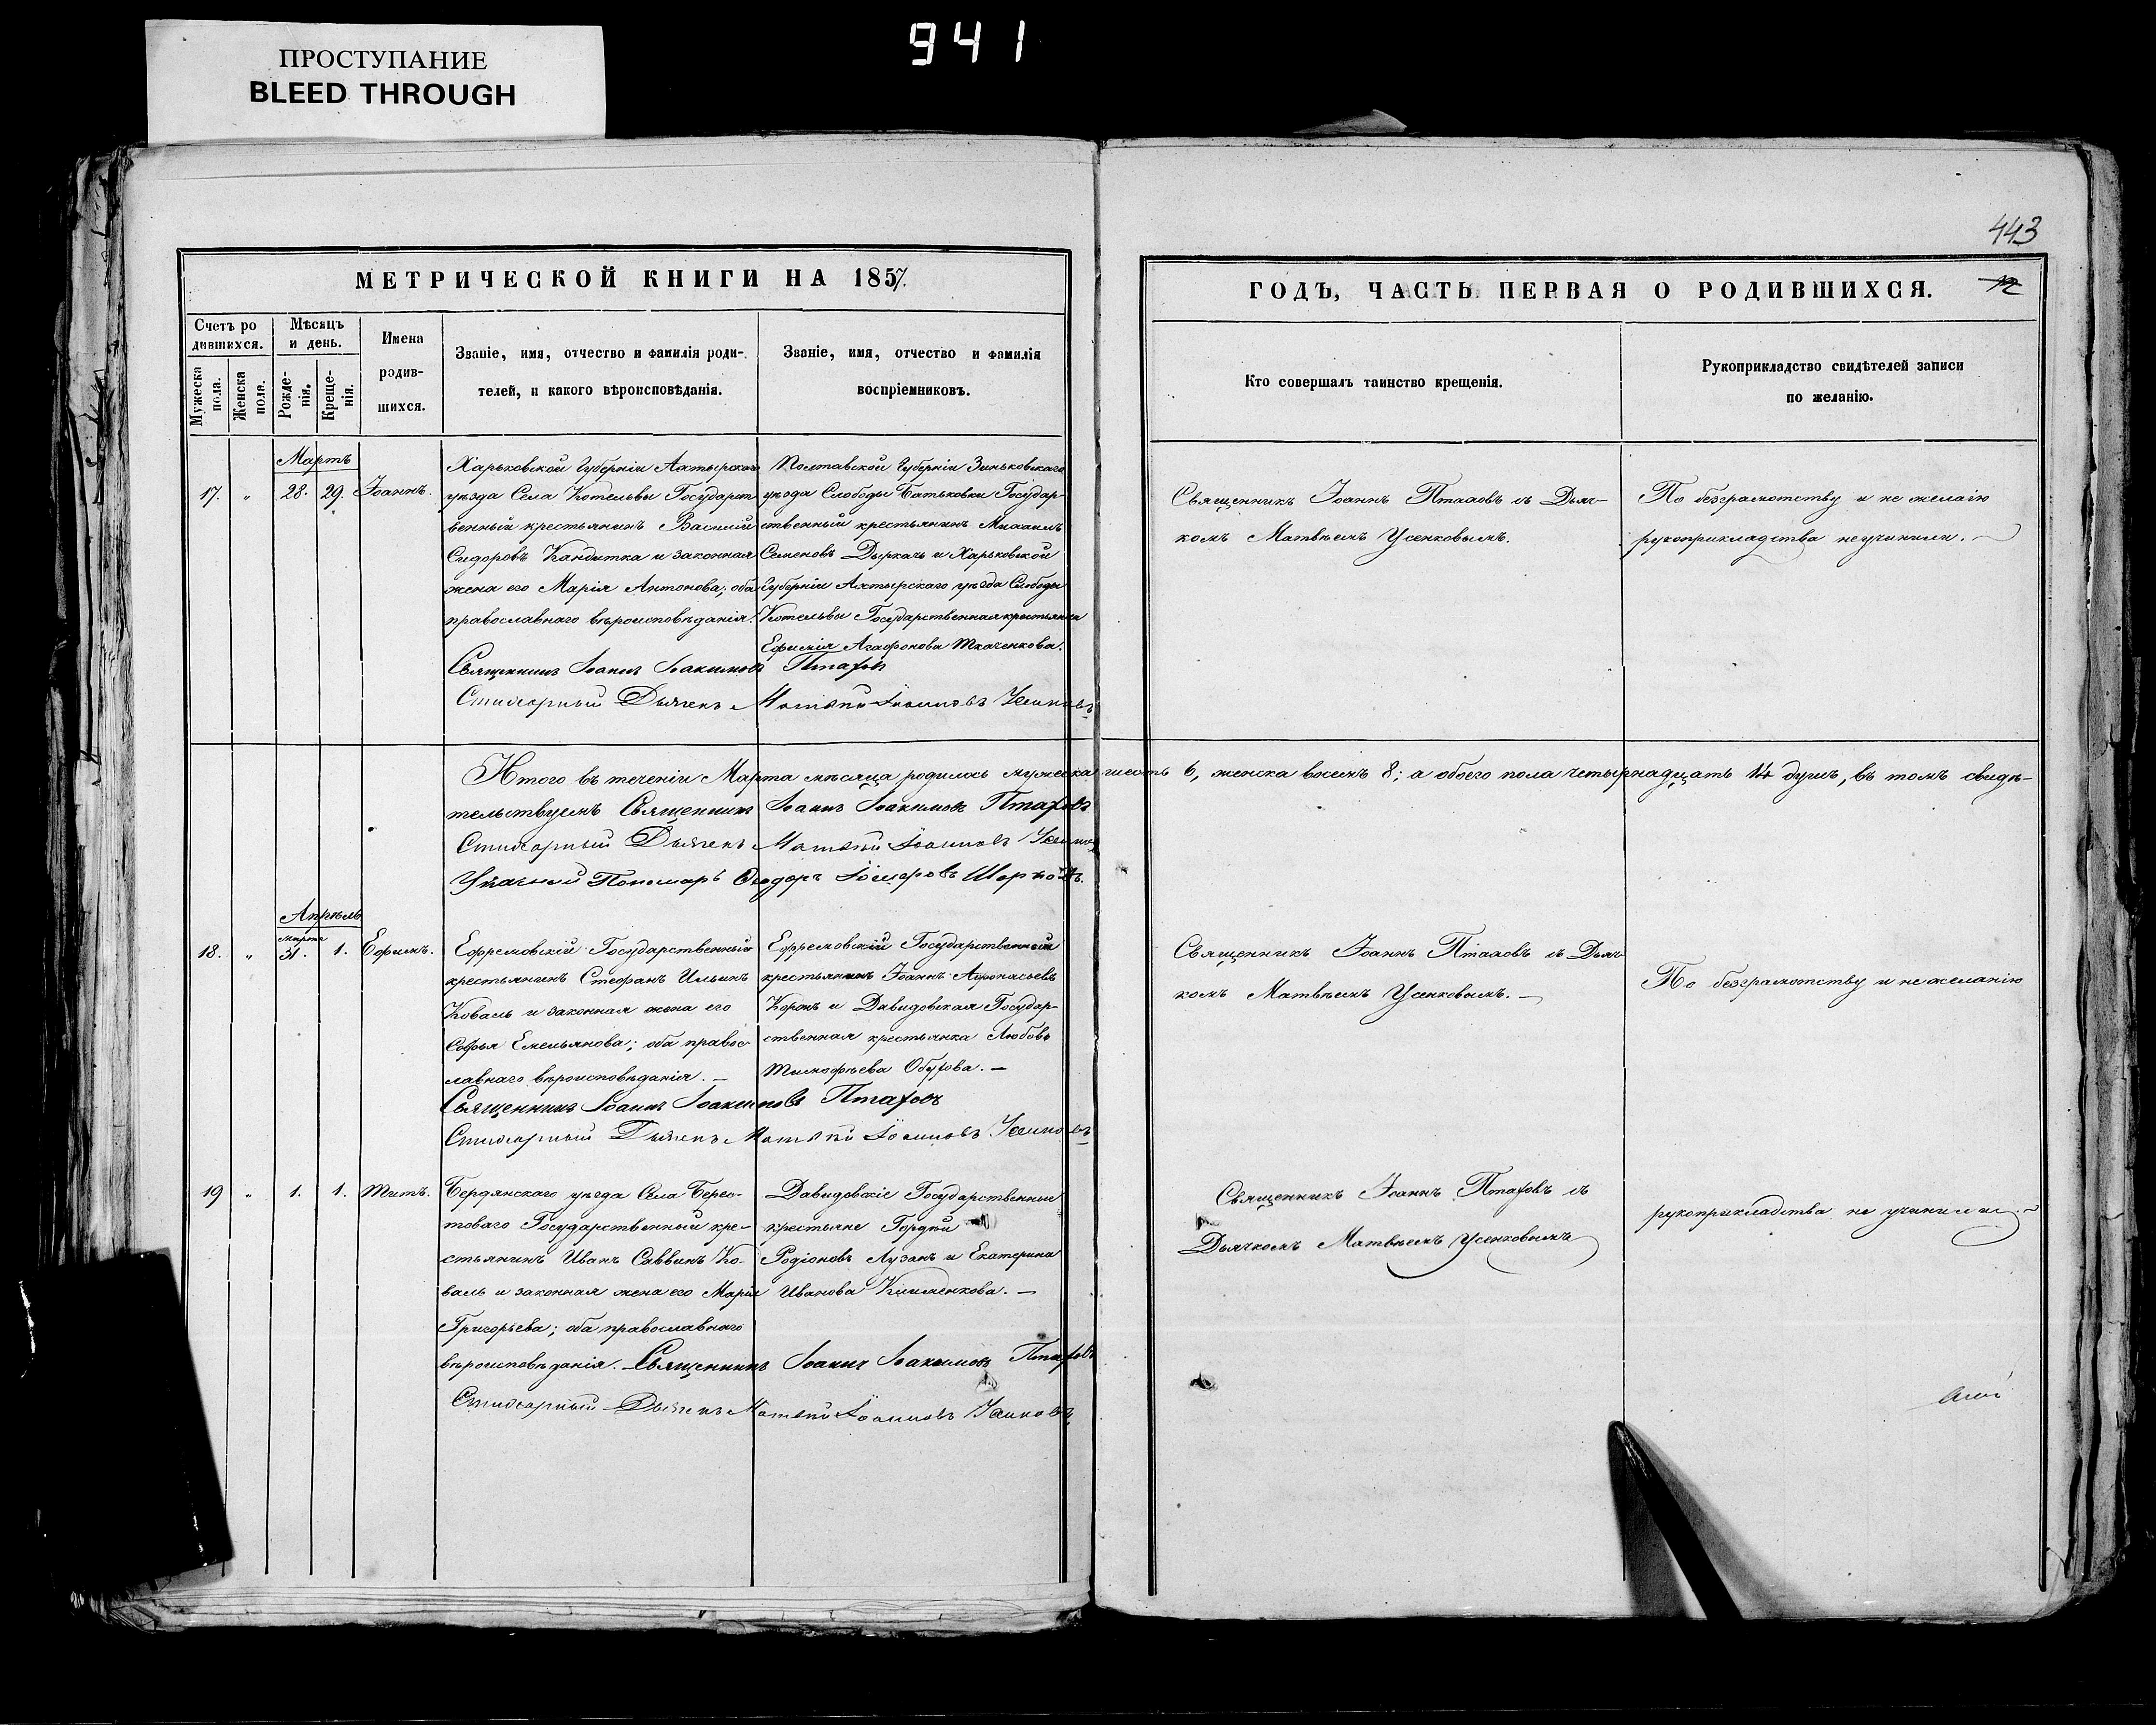 941
ПРОСТУПАНИЕ
BLEED THROUGH
443
МЕТРИЧЕСКОЙ КНИГИ НА 1857.
Счетъ ро
дившихся.
Мужеска
пола.
Женска
пола.
Мѣсяцъ
и день.
Рожде-
нія.
Креще-
нія.
Имена
родив-
шихся.
Званіе, имя, отчество и фамилія роди-
телей, и какого вѣроисповѣданія.
Званіе, имя, отчество и фамилія
воспріемниковъ.
ГОДЪ, ЧАСТЬ ПЕРВАЯ О РОДИВШИХСЯ.
Кто совершалъ таинство крещенія.
Рукоприкладство свидѣтелей записи
по желанію.
Мартъ
17. " 28. 29. Іоаннъ.
Харьковской Губерніи Ахтырскаго
уѣзда Села Котельвы Государст
венный крестьянинъ Василій
Сидоровъ Кандитка и законная
жена его Марія Антонова; оба
православнаго вѣроисповѣданія.
Полтавской Губерніи Зиньковскаго
уѣзда Слободы Батьковки Государ-
ственный крестьянинъ Михаилъ
Семеновъ Дыркачь и Харьковской
Губерніи Ахтырскаго уѣзда Слободы
Котельвы Государственная крестьянка
Агафонова Ткаченкова.
Священникъ Іоаннъ Іоакимовъ Птаховъ
Стихарный Дьячекъ Матвѣй Іоанновъ Усенковъ
Священникъ Іоаннъ Птаховъ съ Дьяч-
комъ Матвѣемъ Усенковымъ.
По безграмотству и не желанію
рукоприкладства неучинили.
Итого въ теченіи Марта мѣсяца родилось мужеска шесть 6, женска восемъ 8; а обоего пола четырнадцать 14 душъ, въ томъ свидѣ-
тельствуемъ Священникъ Іоаннъ Іоакимовъ Птаховъ
Стихарный Дьячекъ Матвѣй Іоанновъ Усенковъ
Пономарь Ѳеодоръ
Апрѣль
18. " марта 31. 1. Ефимъ.
Ефремовскій Государственный
крестьянинъ Стефанъ Ильинъ
Коваль и законная жена его
Софья Емельянова; оба правос-
лавнаго вѣроисповѣданія. —
Ефремовскій Государственный
крестьянинъ Іоаннъ Афонасьевъ
Коржъ и Давидовская Государ-
ственная крестьянка Любовь
Тимофѣева Обухова. —
Священникъ Іоаннъ Іоакимовъ Птаховъ
Стихарный Дьячекъ Матвѣй Іоанновъ Усенковъ
Священникъ Іоаннъ Птаховъ съ Дьяч-
комъ Матвѣемъ Усенковымъ. —
По безграмотству и не желанію
19 " 1. 1. Титъ.
Бердянскаго уѣзда Села Берес-
товаго Государственный кре-
стьянинъ Иванъ Саввинъ Ко-
валь и законная жена его Марія
Григорьева; оба православнаго
вѣроисповѣданія. Священникъ Іоаннъ Іоакимовъ Птаховъ
Давидовскіе Государственные
крестьяне Гордѣй
Родіоновъ Лузанъ и Екатерина
Иванова Клименкова. —
Стихарный Дьячекъ Матвѣй Іоанновъ Усенковъ
Священникъ Іоаннъ Птаховъ съ
Дьячкомъ Матвѣемъ Усенковымъ
рукоприкладства не учинили